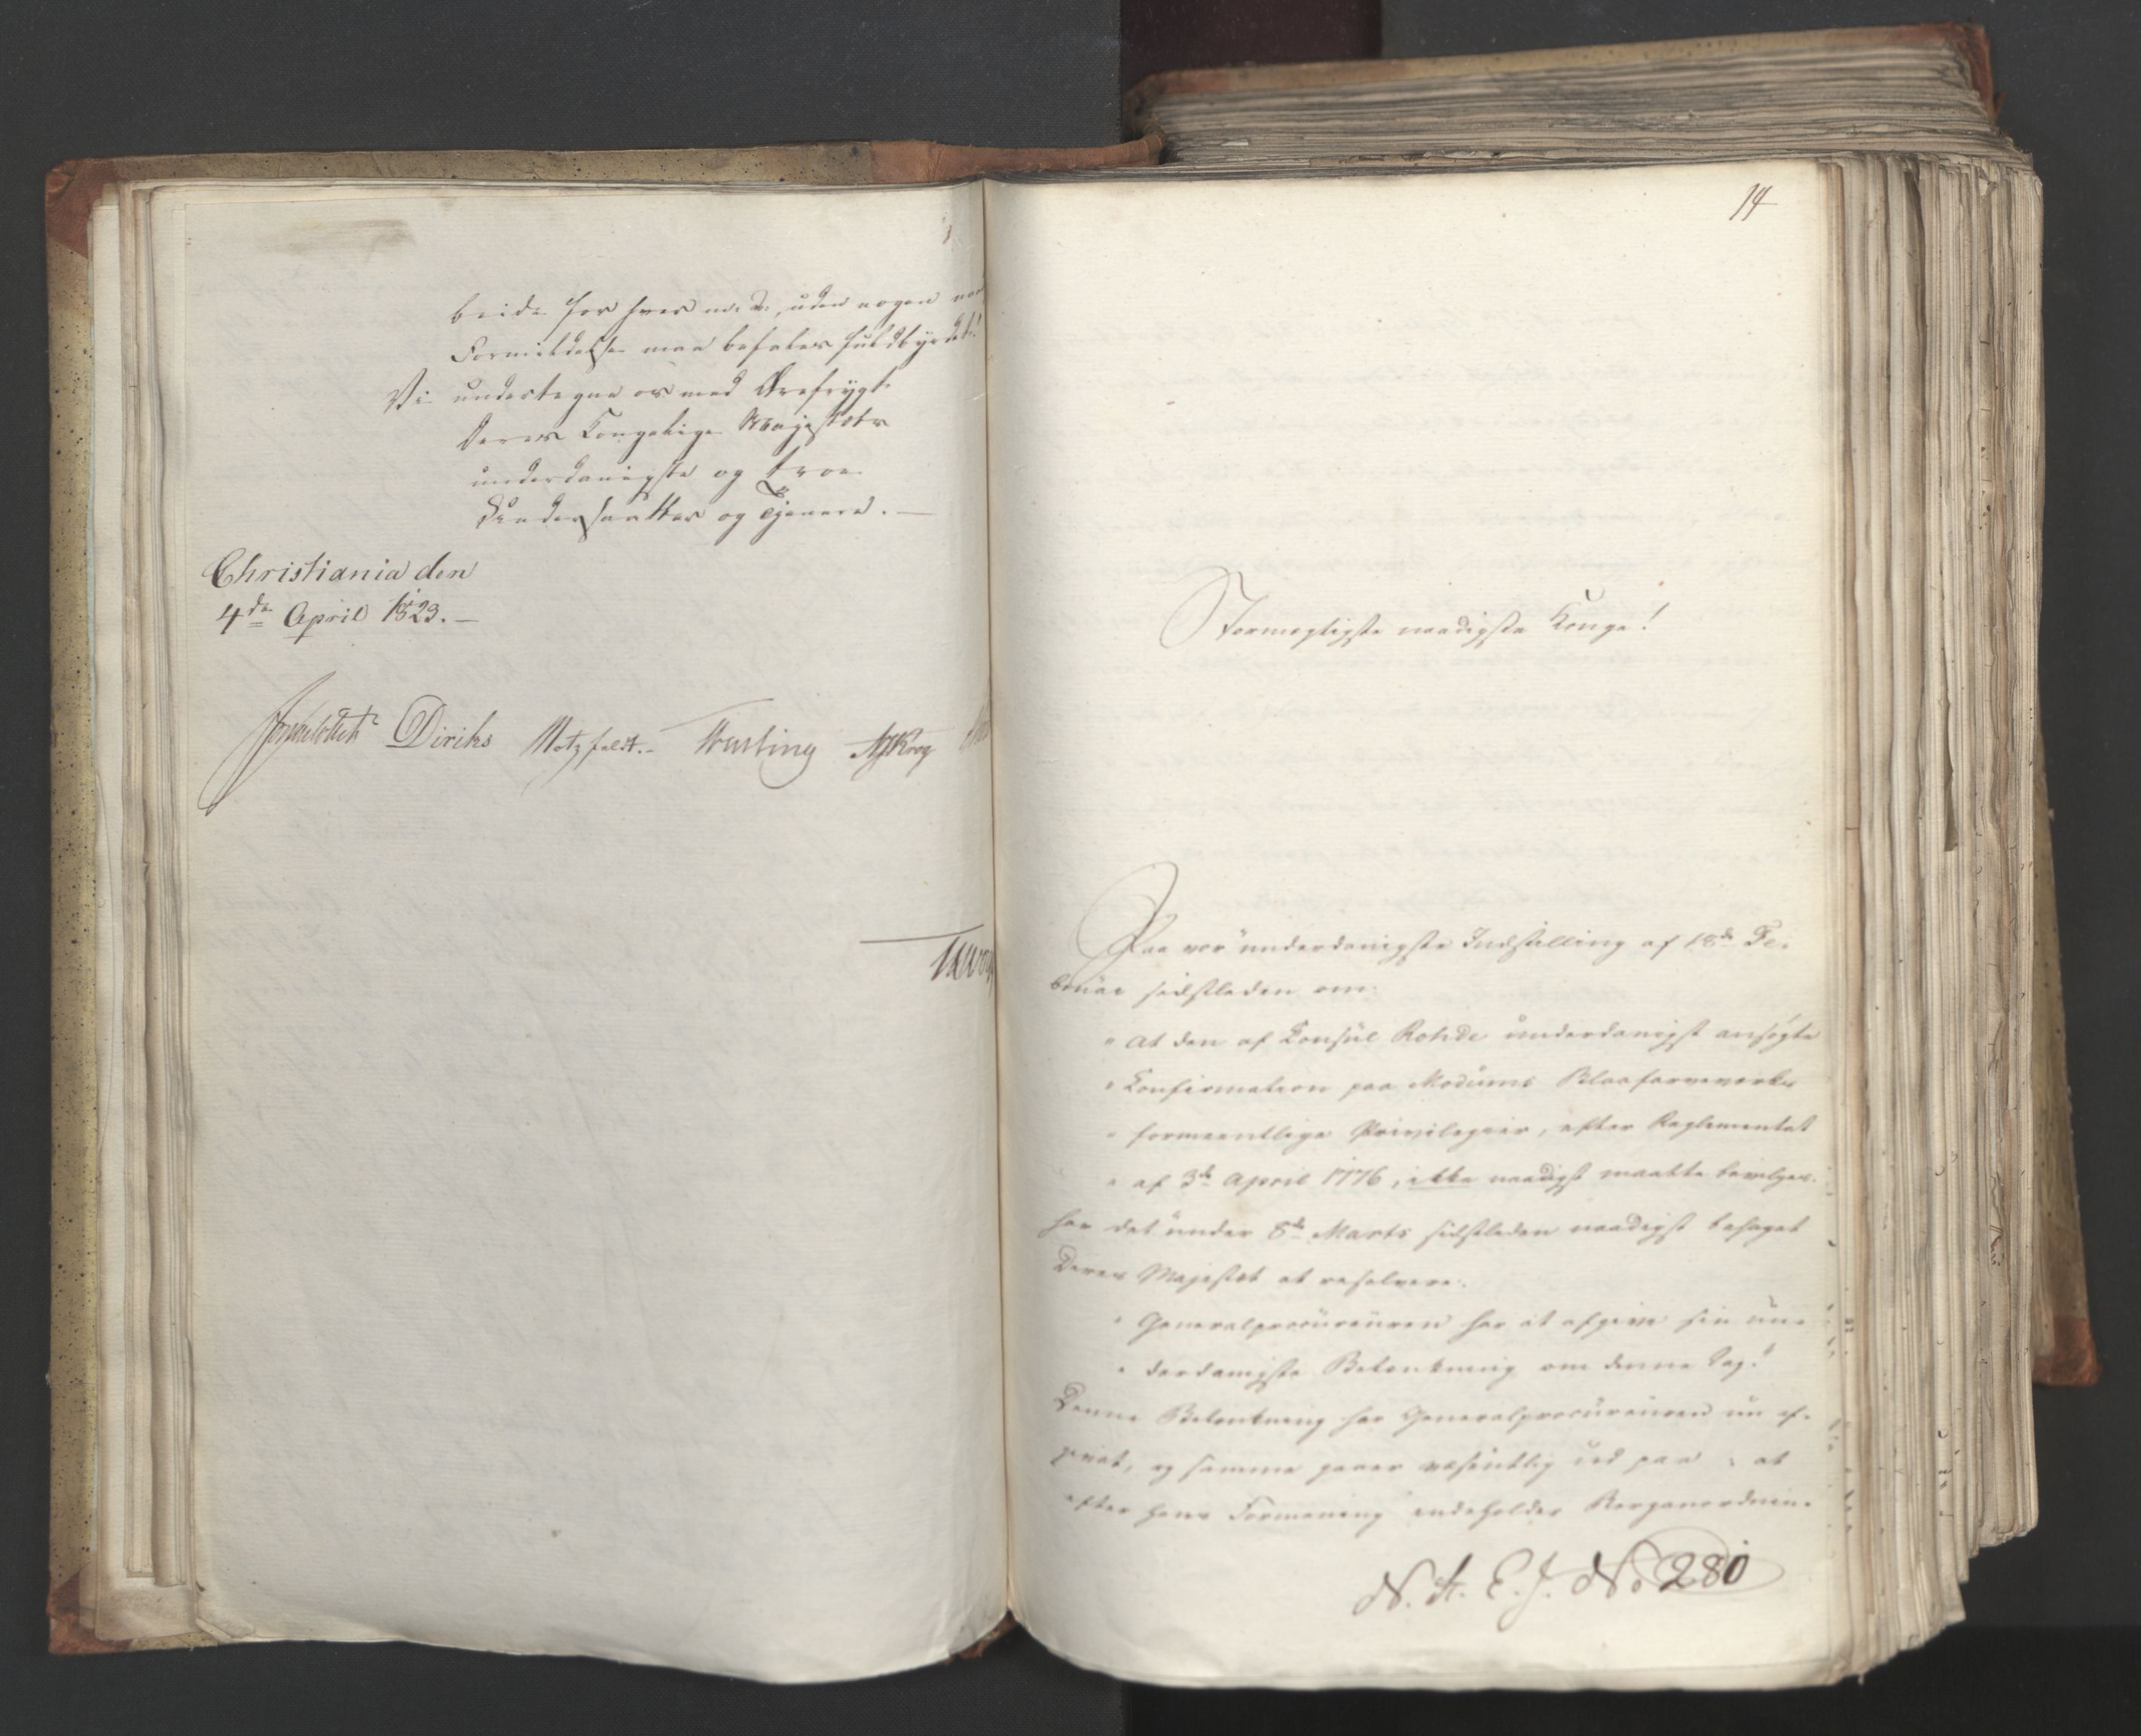 beide for hver m. v., uden nogen
Formildelse maa befales fuldbyrdet!
Vi undertegne os med Ærefrygt
Deres Kongelige Majestæts
underdanigste og troe
Undersaatter og Tjenere. —
Christiania den
4de April 1823. —
Diriks Motzfeldt. Krog
14
Stormægtigste naadigste Konge!
Paa vor underdanigste Indstilling af 18de Fe-
bruar sidstleden om:
" At den af Konsul Rohde underdanigst ansøgte
" Konfirmation paa Modums Blaafarveværks
" formeentlige Privilegier, efter Reglementet
" af 3de April 1776, ikke naadigst maatte bevilges.
har det under 8de Marts sidstleden naadigst behaget
Deres Majestæt at resolvere:
" Generalprocureuren har at afgive sin un-
" derdanigste Betænkning om denne Sag!"
Denne Betænkning har Generalprocureuren nu af-
givet, og samme gaaer væsentlig ud paa: at
efter hans Formening indeholder Berganordnin-
N. St. E. J. No. 280